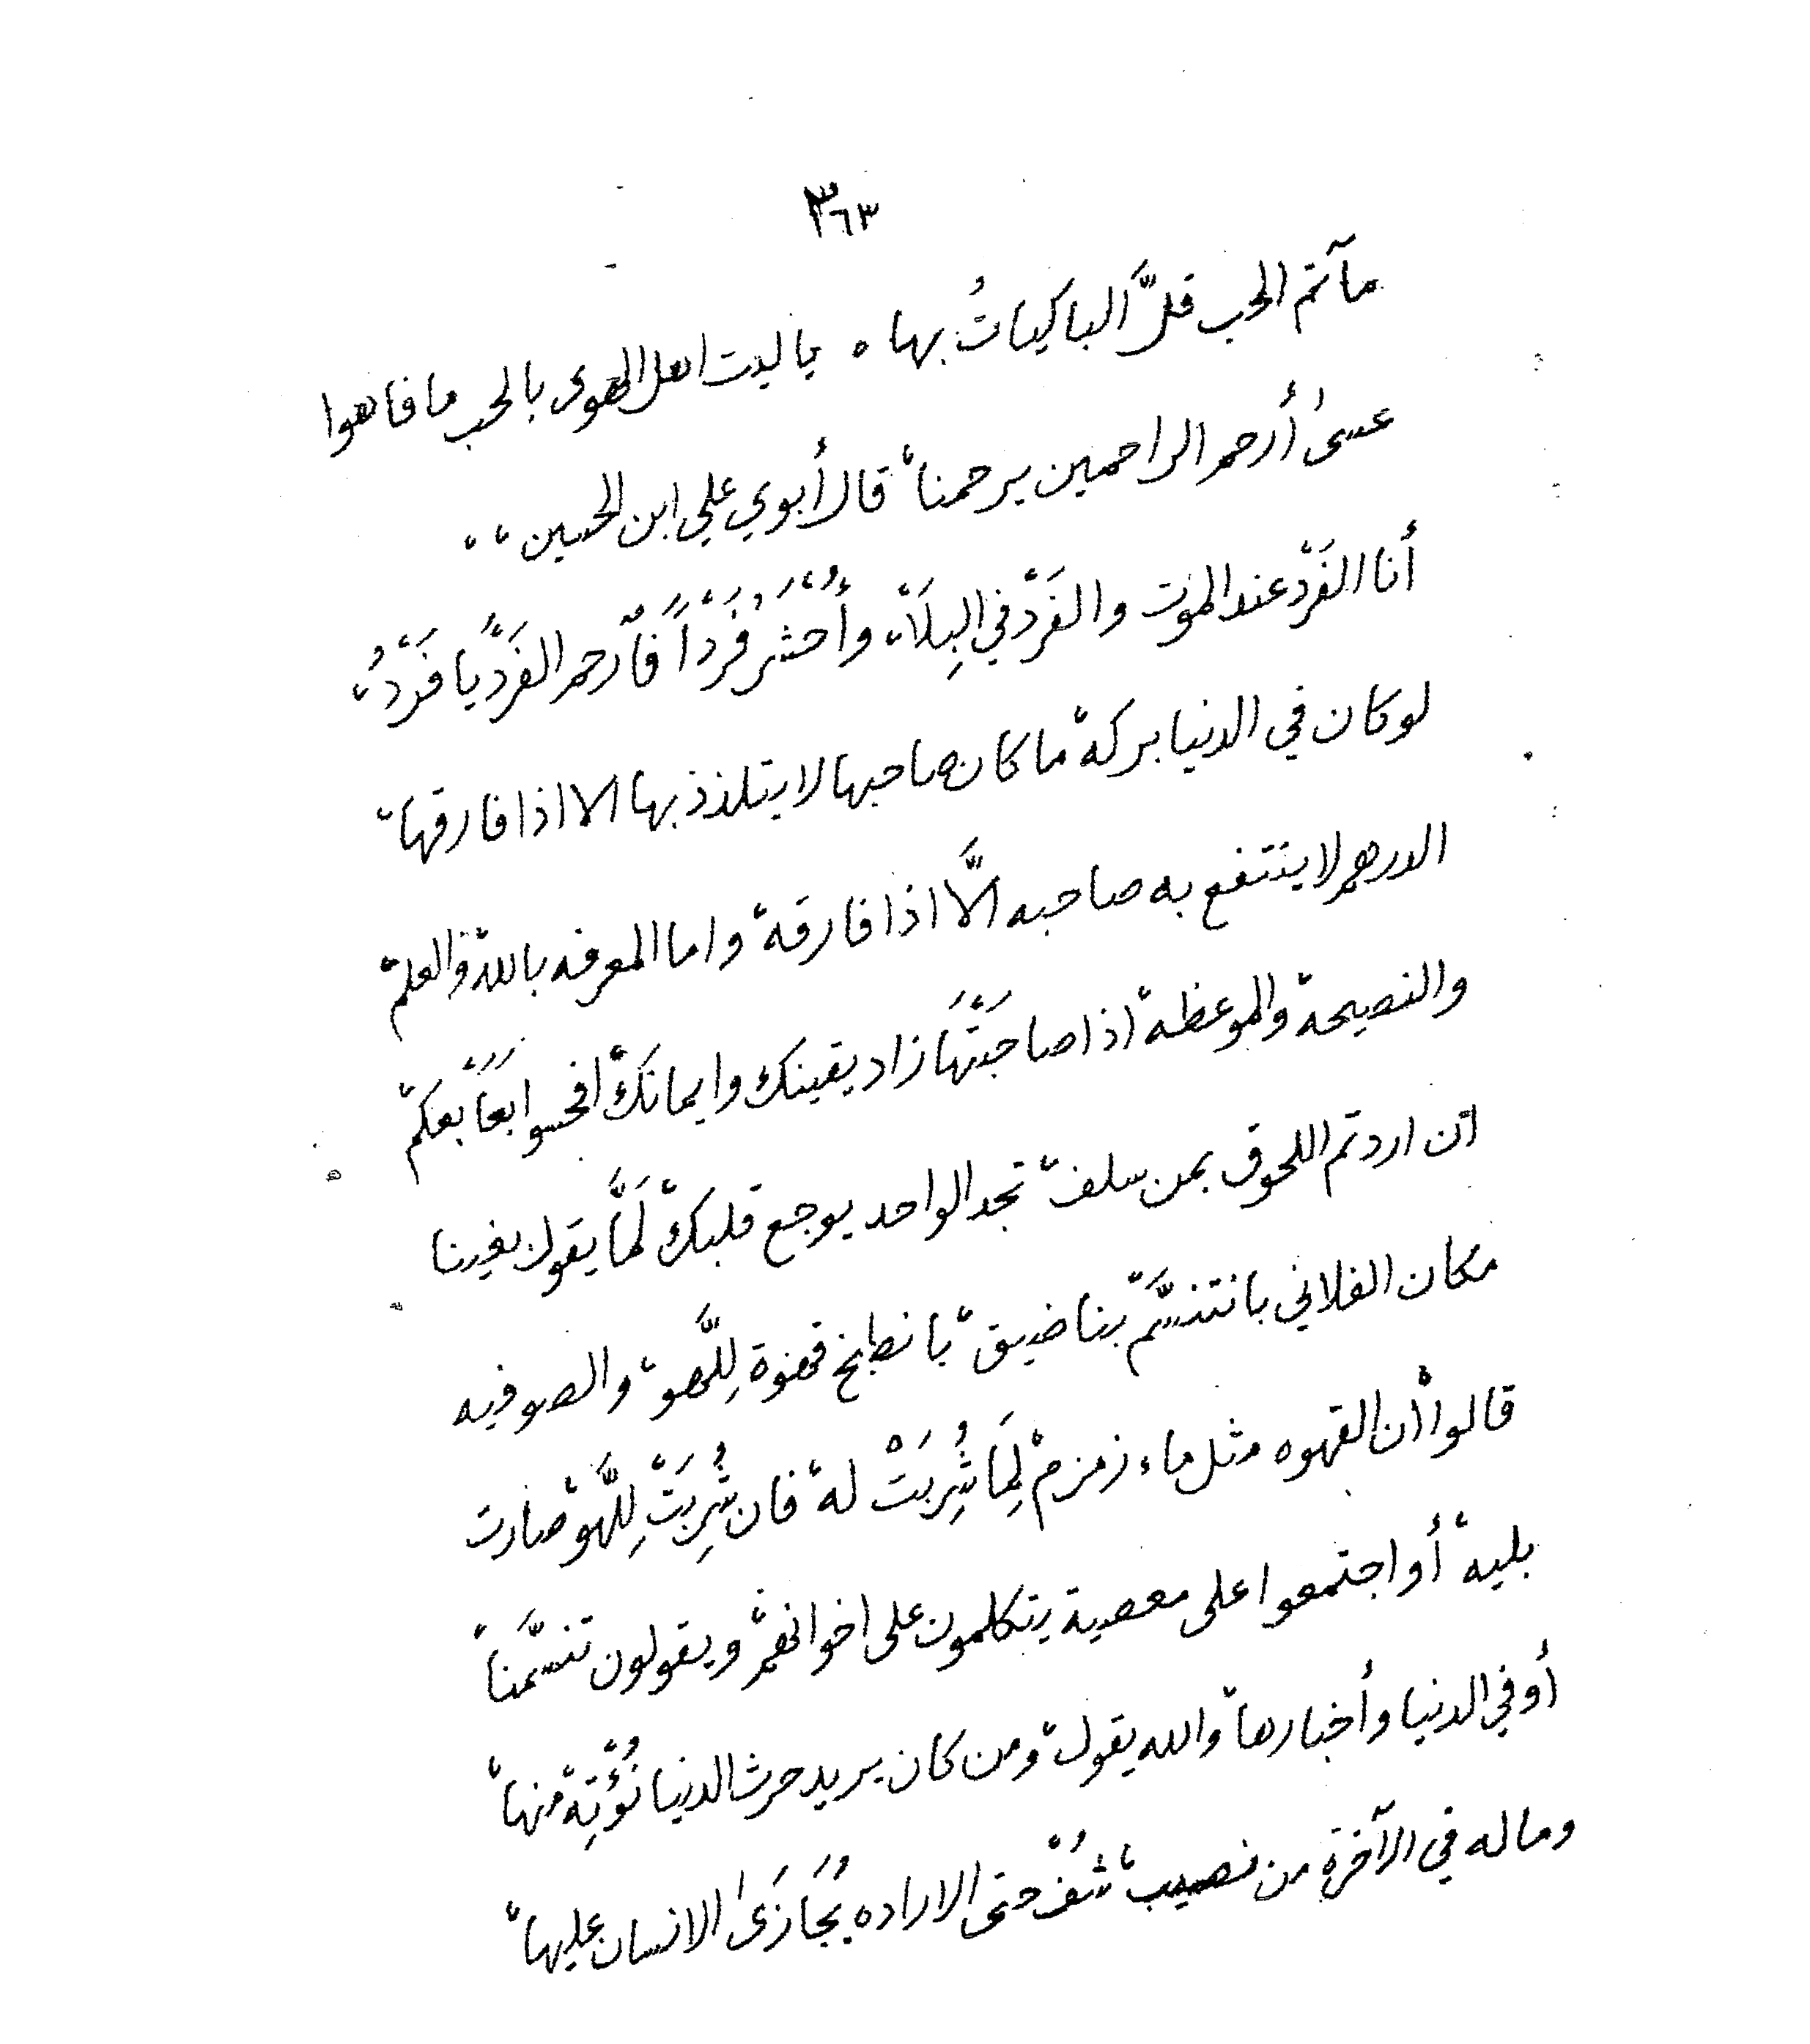 ٣٦٣
مآتم الحب قلَّ الباكياتُ بها . ياليت اهل الهوى بالحب ما فاهوا
عسىٰ أرحم الراحمين يرحمنا قال أبوي علي ابن الحسين
أنا الفَرْد عند الموت والفَرْد في البِلَا وأُحْشَرُ فَرْداً فارحم الفَرْد يا فَرْدُ
لو كان في الدنيا بركه ما كان صاحبها لا يتلذذ بها الا اذا فارقها
الدرهم لا ينتفع به صاحبه الَّا اذا فارقه واما المعرفه بالله والعلم
والنصيحه والموعظه اذا صاحَبْتَهَا زاد يقينك وايمانك
ان اردتم اللحوق بمن سلف تجد الواحد يوجع قلبك لَمَّا يقول بغينا
مكان الفلاني بانتنسَّم بنا ضيق بانطبخ قهوة لِلَّهو والصوفيه
قالوا ان القهوه مثل ماء زمزم لِمَا شُرِبَتْ له فان شُرِبَتْ لِلَّهْو صارت
بليه أو اجتمعوا على معصية يتكلمون على اخوانهم ويقولون تنسَّمنا
أو في الدنيا وأخبارها والله يقول ومن كان يريد حرث الدنيا نُؤْتِه منها
وماله في الآخرة من نصيب شُفْ حتى الاراده يُجَازَىٰ الانسان عليها